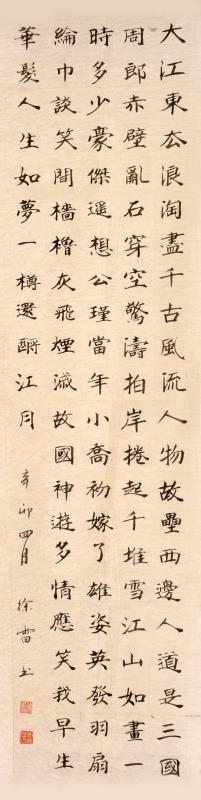 大江東去浪淘盡千古風流人物故壘西邊人道是三國
周郎赤壁亂石穿空驚濤拍岸捲起千堆雪江山如畫一
時多少豪傑遥想公瑾當年小喬初嫁了雄姿英發羽扇
綸巾談笑間檣櫓灰飛煙滅故國神遊多情應笑我早生
華髮人生如夢一樽還酹江月
辛卯四月 徐雷书